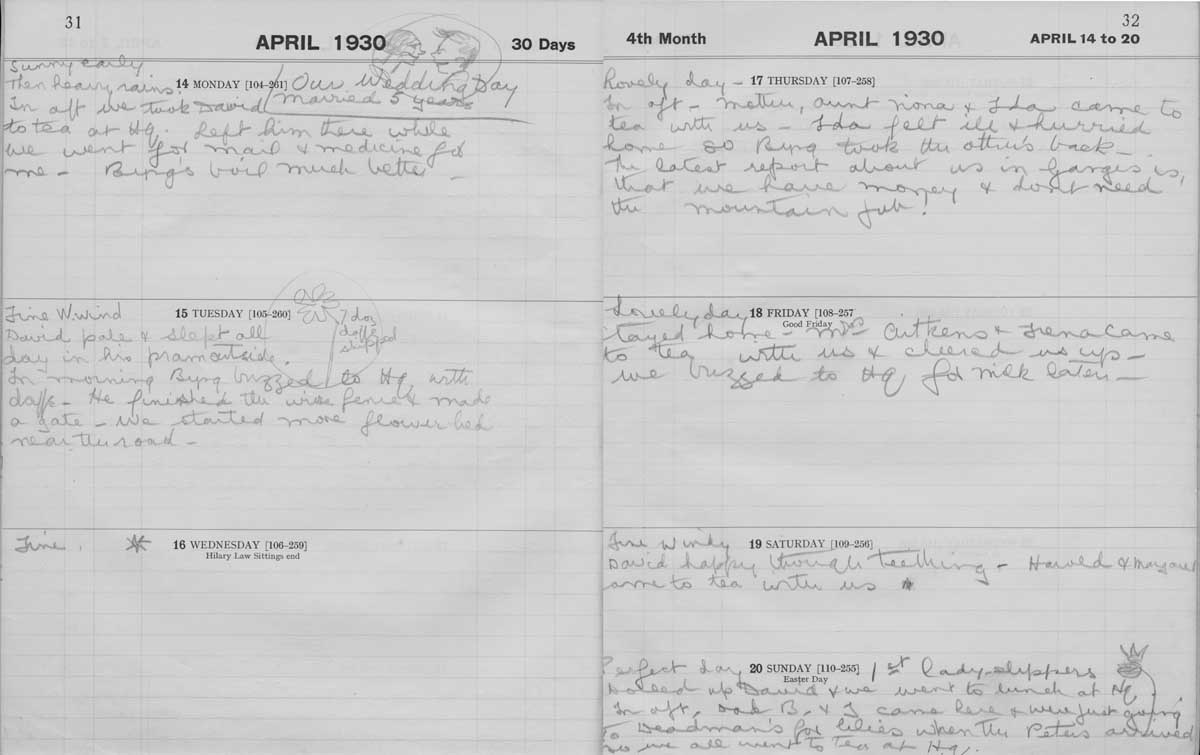 31
APRIL 1930
30 Days
Sunny early
Then heavy rains.
14 MONDAY [104-261] Our Wedding Day
married 5 years
In aft we took David
to tea at Hq. Left him there while
we went for mail & medicine for
me - Byng's boil much better -
15 TUESDAY [105-260]
Fine W. wind
7 doz
daffs
shipped
David pale & slept all
day in his pram outside.
In morning Byng buzzed to Hq. with
daffs - He finished the wire fence & made
a gate - we started more flower bed
near the road -
Fine. *
16 WEDNESDAY [106-259]
Hilary Law Sittings end
32
4th Month
APRIL 1930
APRIL 14 to 20
Lovely day -
17 THURSDAY [107-258]
In aft - mother, aunt Nona & Ida came to
tea with us - Ida felt ill & hurried
home so Byng took the others back -
The latest report about us in Ganges is,
that we have money & don't need
the mountain job!
Lovely day
18 FRIDAY [108-257
Good Friday
tayed home - Mrs & Trena came
to tea with us & cheered us up -
we buzzed to Hq for milk later -
Fine Windy
19 SATURDAY [109-256]
David happy though teething - Harold & Margaret
ame to tea with us *
Perfect day
20 SUNDAY [110-255] 1st lady-slippers
Easter Day
up David & we went to lunch at Hq.
In aft, B. & J came here & were just going
to Deadman's for lilies when the Peters arrived
so we all went to tea at Hq.